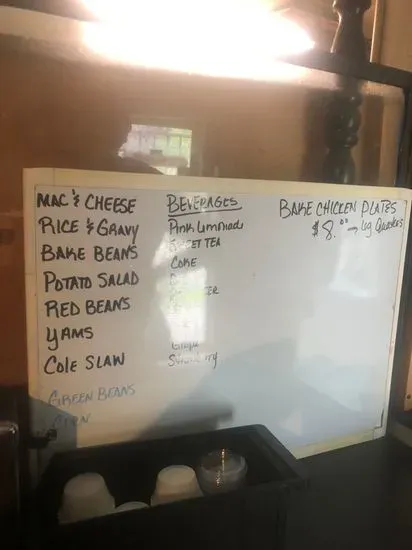 MAC & CHEESE
RICE & GRAVY
BAKE BEANS
POTATO SALAD
RED BEANS
YAMS
COLE SLAW
GREEN BEANS
CORN
BEVERAGES
PINK LIMONADE
SWEET TEA
COKE
GRAPE
STRAWBERRY
BAKE CHICKEN PLATES
$8.00 → Leg Quarters